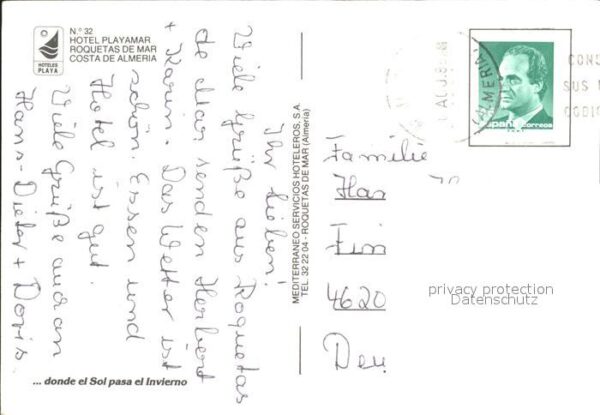 HOTELES
PLAYA
N.º 32
HOTEL PLAYAMAR
ROQUETAS DE MAR
COSTA DE ALMERIA
Ihr lieben!
Viele Grüße aus Roquetas
de Mar senden Herbert
+ Karin. Das Wetter ist
schön. Essen und
Hotel ist gut.
Viele Grüße auch an
Hans-Dieter + Doris.
... donde el Sol pasa el Invierno
MEDITERRANEO SERVICIOS HOTELEROS, S.A.
TEL. 32 22 04 - ROQUETAS DE MAR (Almería)
ALMERIA
CONS
SUS
CODIG
españa correos
Familie
Has
Fin
4620
Deu
privacy protection
Datenschutz